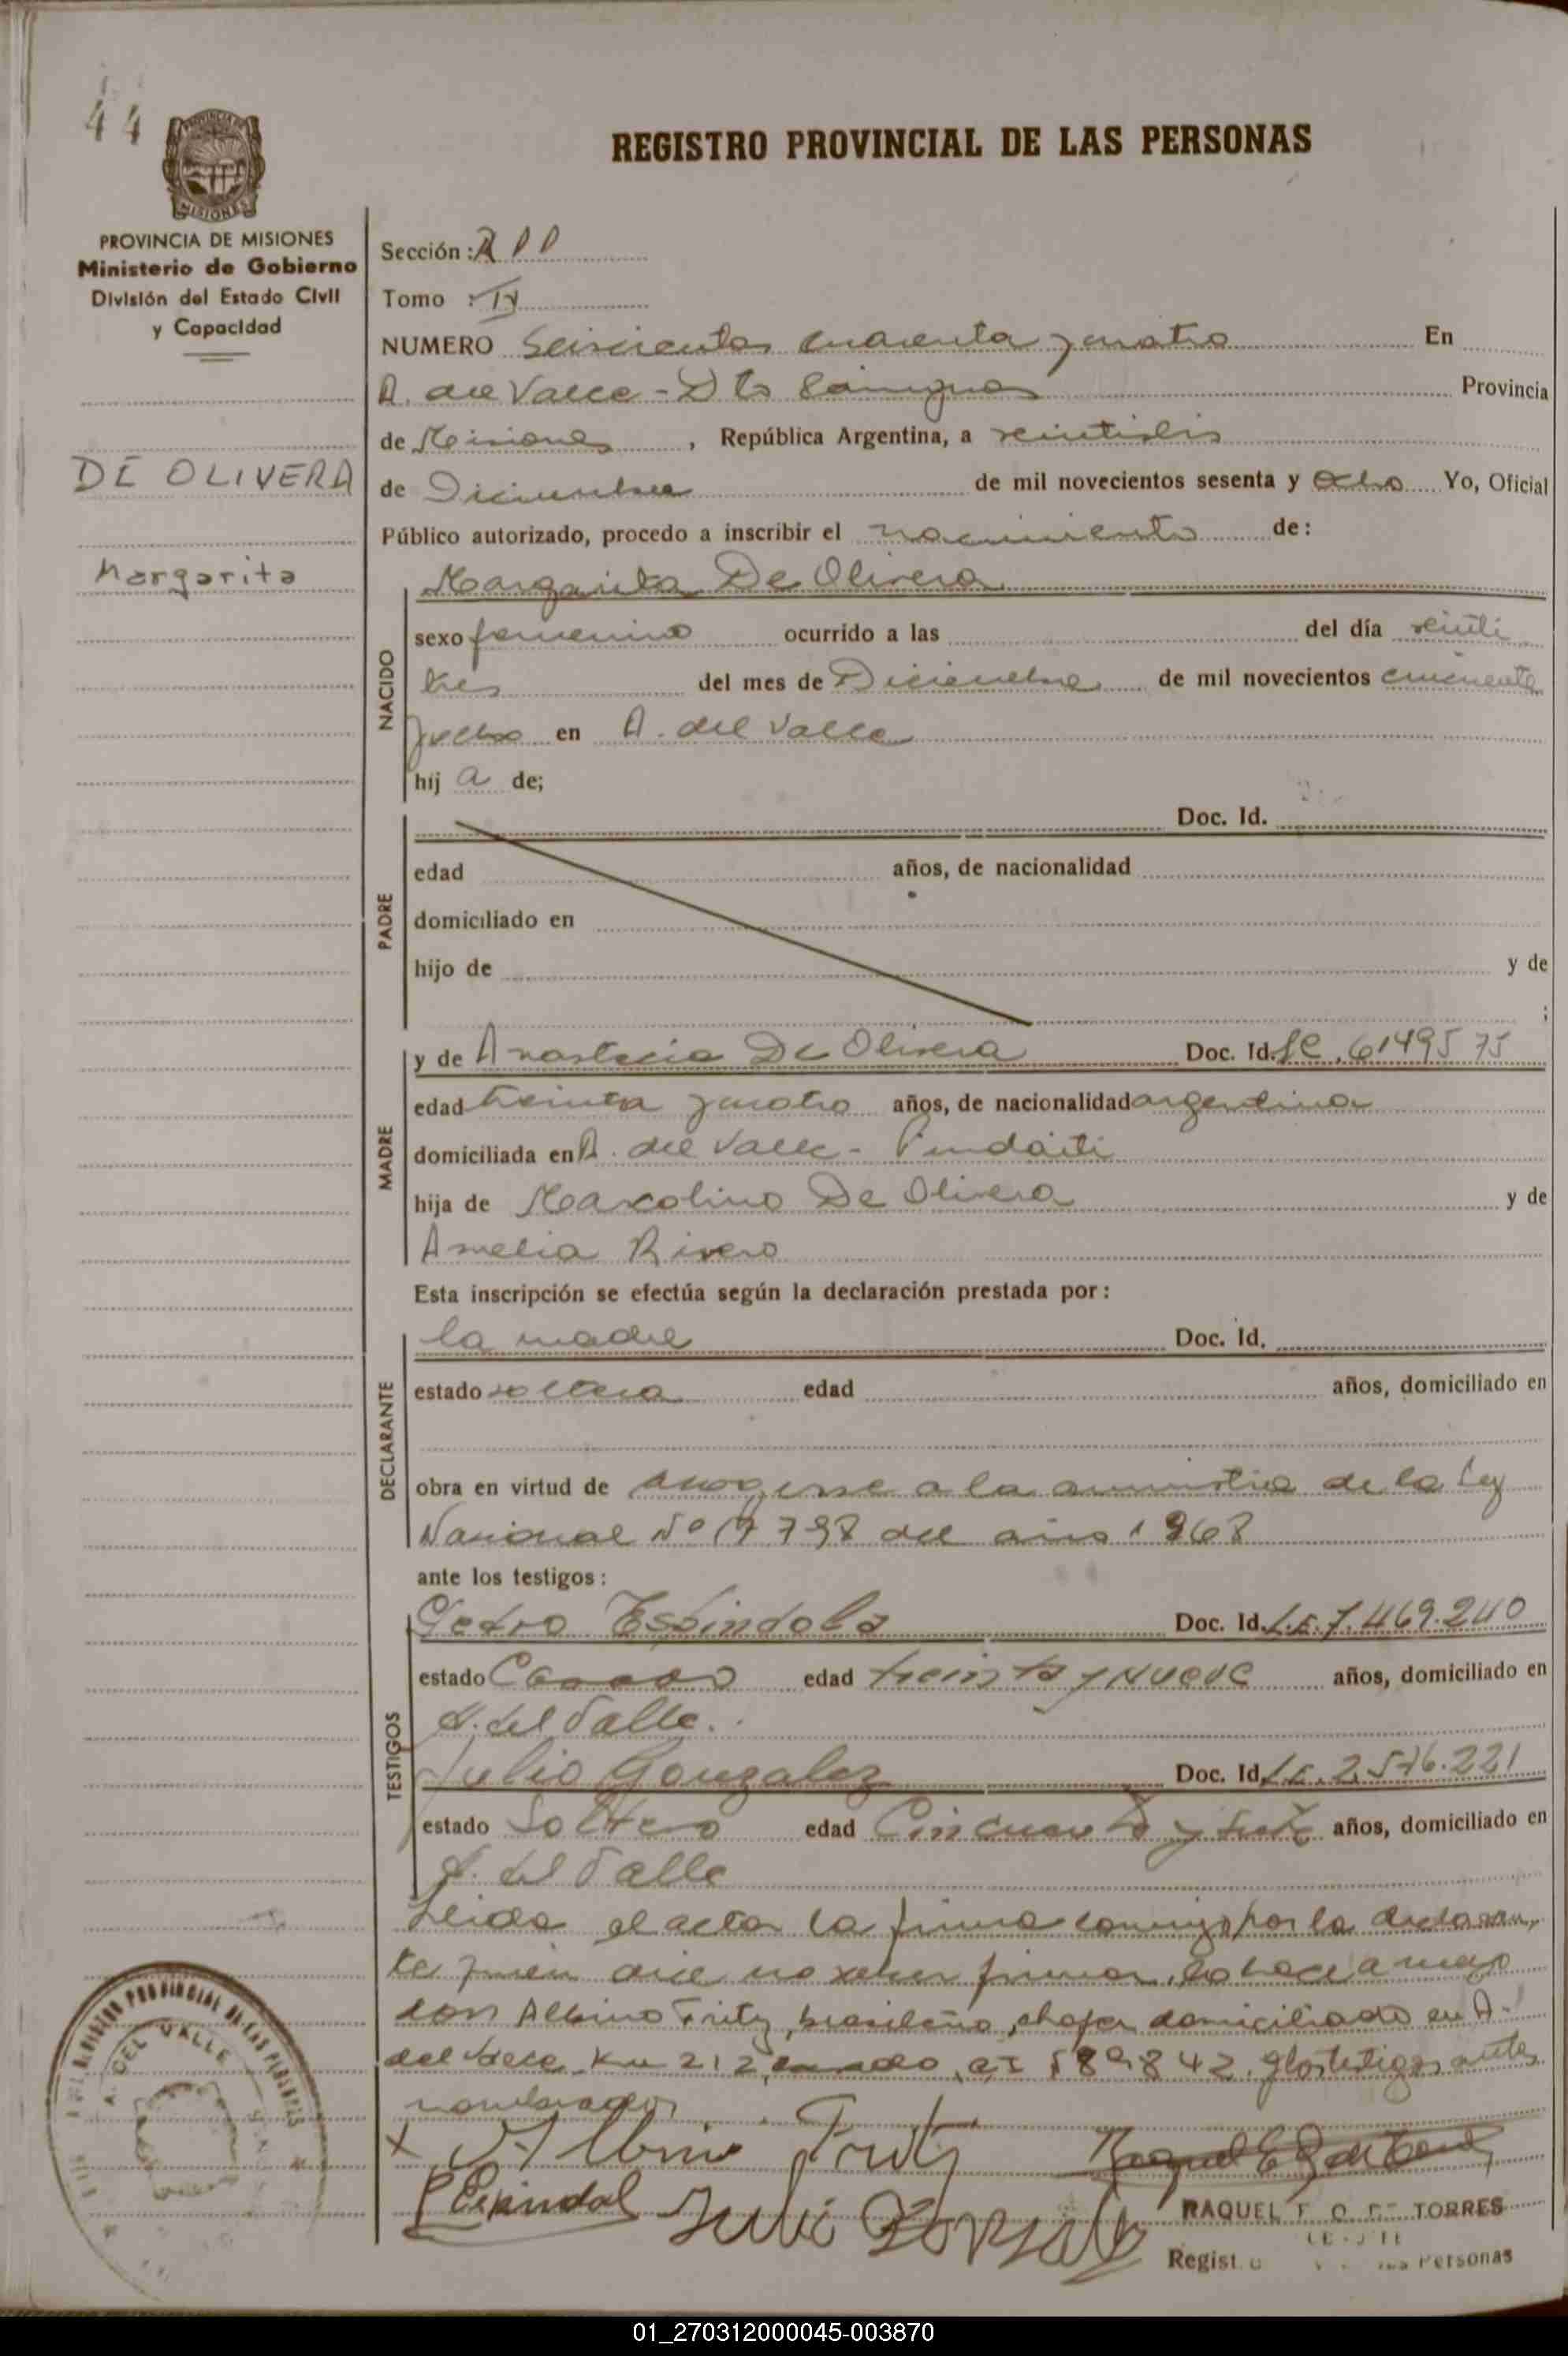 44
PROVINCIA DE
MISIONES
REGISTRO PROVINCIAL DE LAS PERSONAS
PROVINCIA DE MISIONES
Ministerio de Gobierno
División del Estado Civil
y Capacidad
DE OLIVERA
Margarita
Sección :
Tomo :
NUMERO Seiscientos cuarenta y cuatro En
A. del Valle - Dto Cainguas Provincia
de Misiones , República Argentina, a veintiséis
de Diciembre de mil novecientos sesenta y ocho Yo, Oficial
Público autorizado, procedo a inscribir el nacimiento de:
NACIDO
Margarita De Olivera
sexo femenino ocurrido a las del día veinti
tres del mes de Diciembre de mil novecientos cincuenta
y ocho en A. del Valle
hij a de;
PADRE
Doc. Id.
edad años, de nacionalidad
domiciliado en
hijo de y de
;
MADRE
y de Anastacia De Olivera Doc. Id. 6149575
edad treinta y cuatro años, de nacionalidad argentina
domiciliada en A. del Valle - Pindaiti
hija de Marcolino De Olivera y de
Amelia Rivero
Esta inscripción se efectúa según la declaración prestada por:
DECLARANTE
la madre Doc. Id.
estado soltera edad años, domiciliado en
obra en virtud de acogerse a la amnistia de la Ley
Nacional Nº 17798 del año 1968
ante los testigos:
TESTIGOS
Pedro Espindola Doc. Id. L.E. 7.469.240
estado Casado edad treinta y Nueve años, domiciliado en
A. del Valle.
Julio Gonzalez Doc. Id. L.E. 2.576.221
estado Soltero edad Cincuenta y siete años, domiciliado en
A. del Valle
Leida el acta la firma conmigo por la declaran-
te quien dice no saber firmar, lo hace a ruego
don Albino Fritz, brasileño, chofer domiciliado en A.
del Valle Km 212, casado, CI 589842 y los testigos antes
nombrados.
Albino Fritz
P Espindola Julio Gonzalez
RAQUEL E. TORRES
Personas
REGISTRO PROVINCIAL DE LAS PERSONAS
A. DEL VALLE
01_270312000045-003870